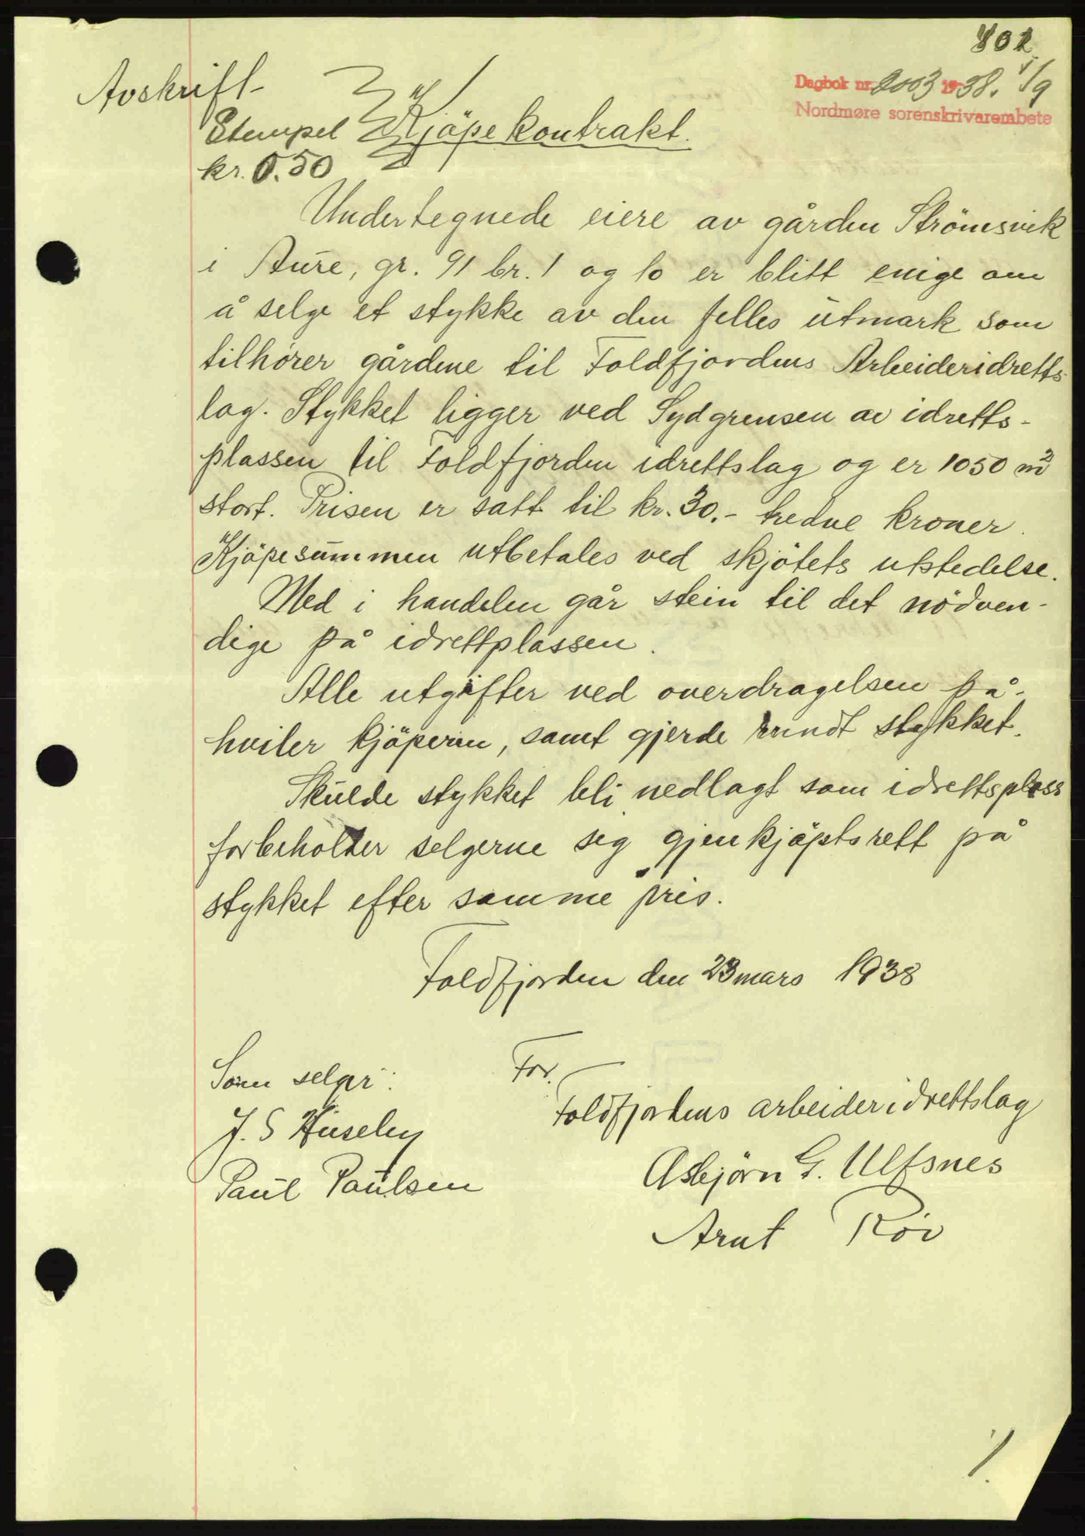 802
Avskrift
Dagbok nr. 2003 1938. 1/9
Nordmøre sorenskrivarembete
Stempel
kr. 0.50
Kjöpekontrakt.
Undertegnede eiere av gården Strömsvik
i Aure, gr. 91 br. 1 og 10 er blitt enige om
å selge et stykke av den felles utmark som
tilhører gårdene til Foldfjordens Arbeideridretts-
lag. Stykket ligger ved Sydgrensen av idretts-
plassen til Foldfjorden idrettslag og er 1050 m²
stort. Prisen er satt til kr. 30.- tredve kroner.
Kjöpesummen utbetales ved skjötets utstedelse.
Med i handelen går stein til det nödven-
dige på idrettplassen.
Alle utgifter ved overdragelsen på-
hviler kjöperen, samt gjerde rundt stykket.
Skulde stykket bli nedlagt som idrettsplass
forbeholder selgerne sig gjenkjöpsrett på
stykket efter samme pris.
Foldfjorden den 23 mars 1938
Som selger:
For.
Foldfjordens arbeideridrettslag
J. S Huseby
Asbjörn G. Ulfsnes
Paul Paulsen
Arnt Röv